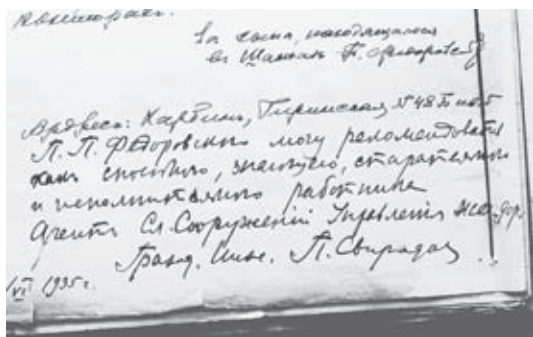 За сына, находящагося
въ Шанхаѣ П. Федоровск
Адресъ: Харбинъ, Гиринская №48 кв 5
П. П. Федоровскаго могу рекомендовать
какъ способнаго, знающаго, старательнаго
и исполнительнаго работника
Агентъ Сл. Сооруженій Управленія Жел. дор.
Гражд. Инж. П. Свиридов
VI 1935 г.